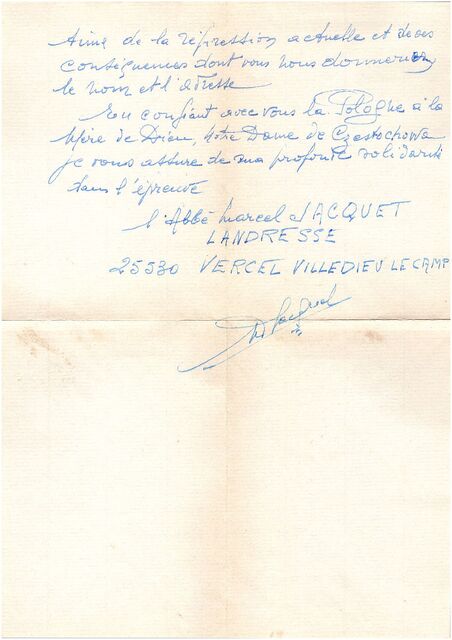 time de la répression actuelle et de ses
conséquences dont vous nous donneriez
le nom et l'adresse
En confiant avec vous la Pologne à la
Mère de Dieu, Notre Dame de Częstochowa
je vous assure de ma profonde solidarité
dans l'épreuve
l'Abbé Marcel JACQUET
LANDRESSE
25530 VERCEL VILLEDIEU LE CAMP